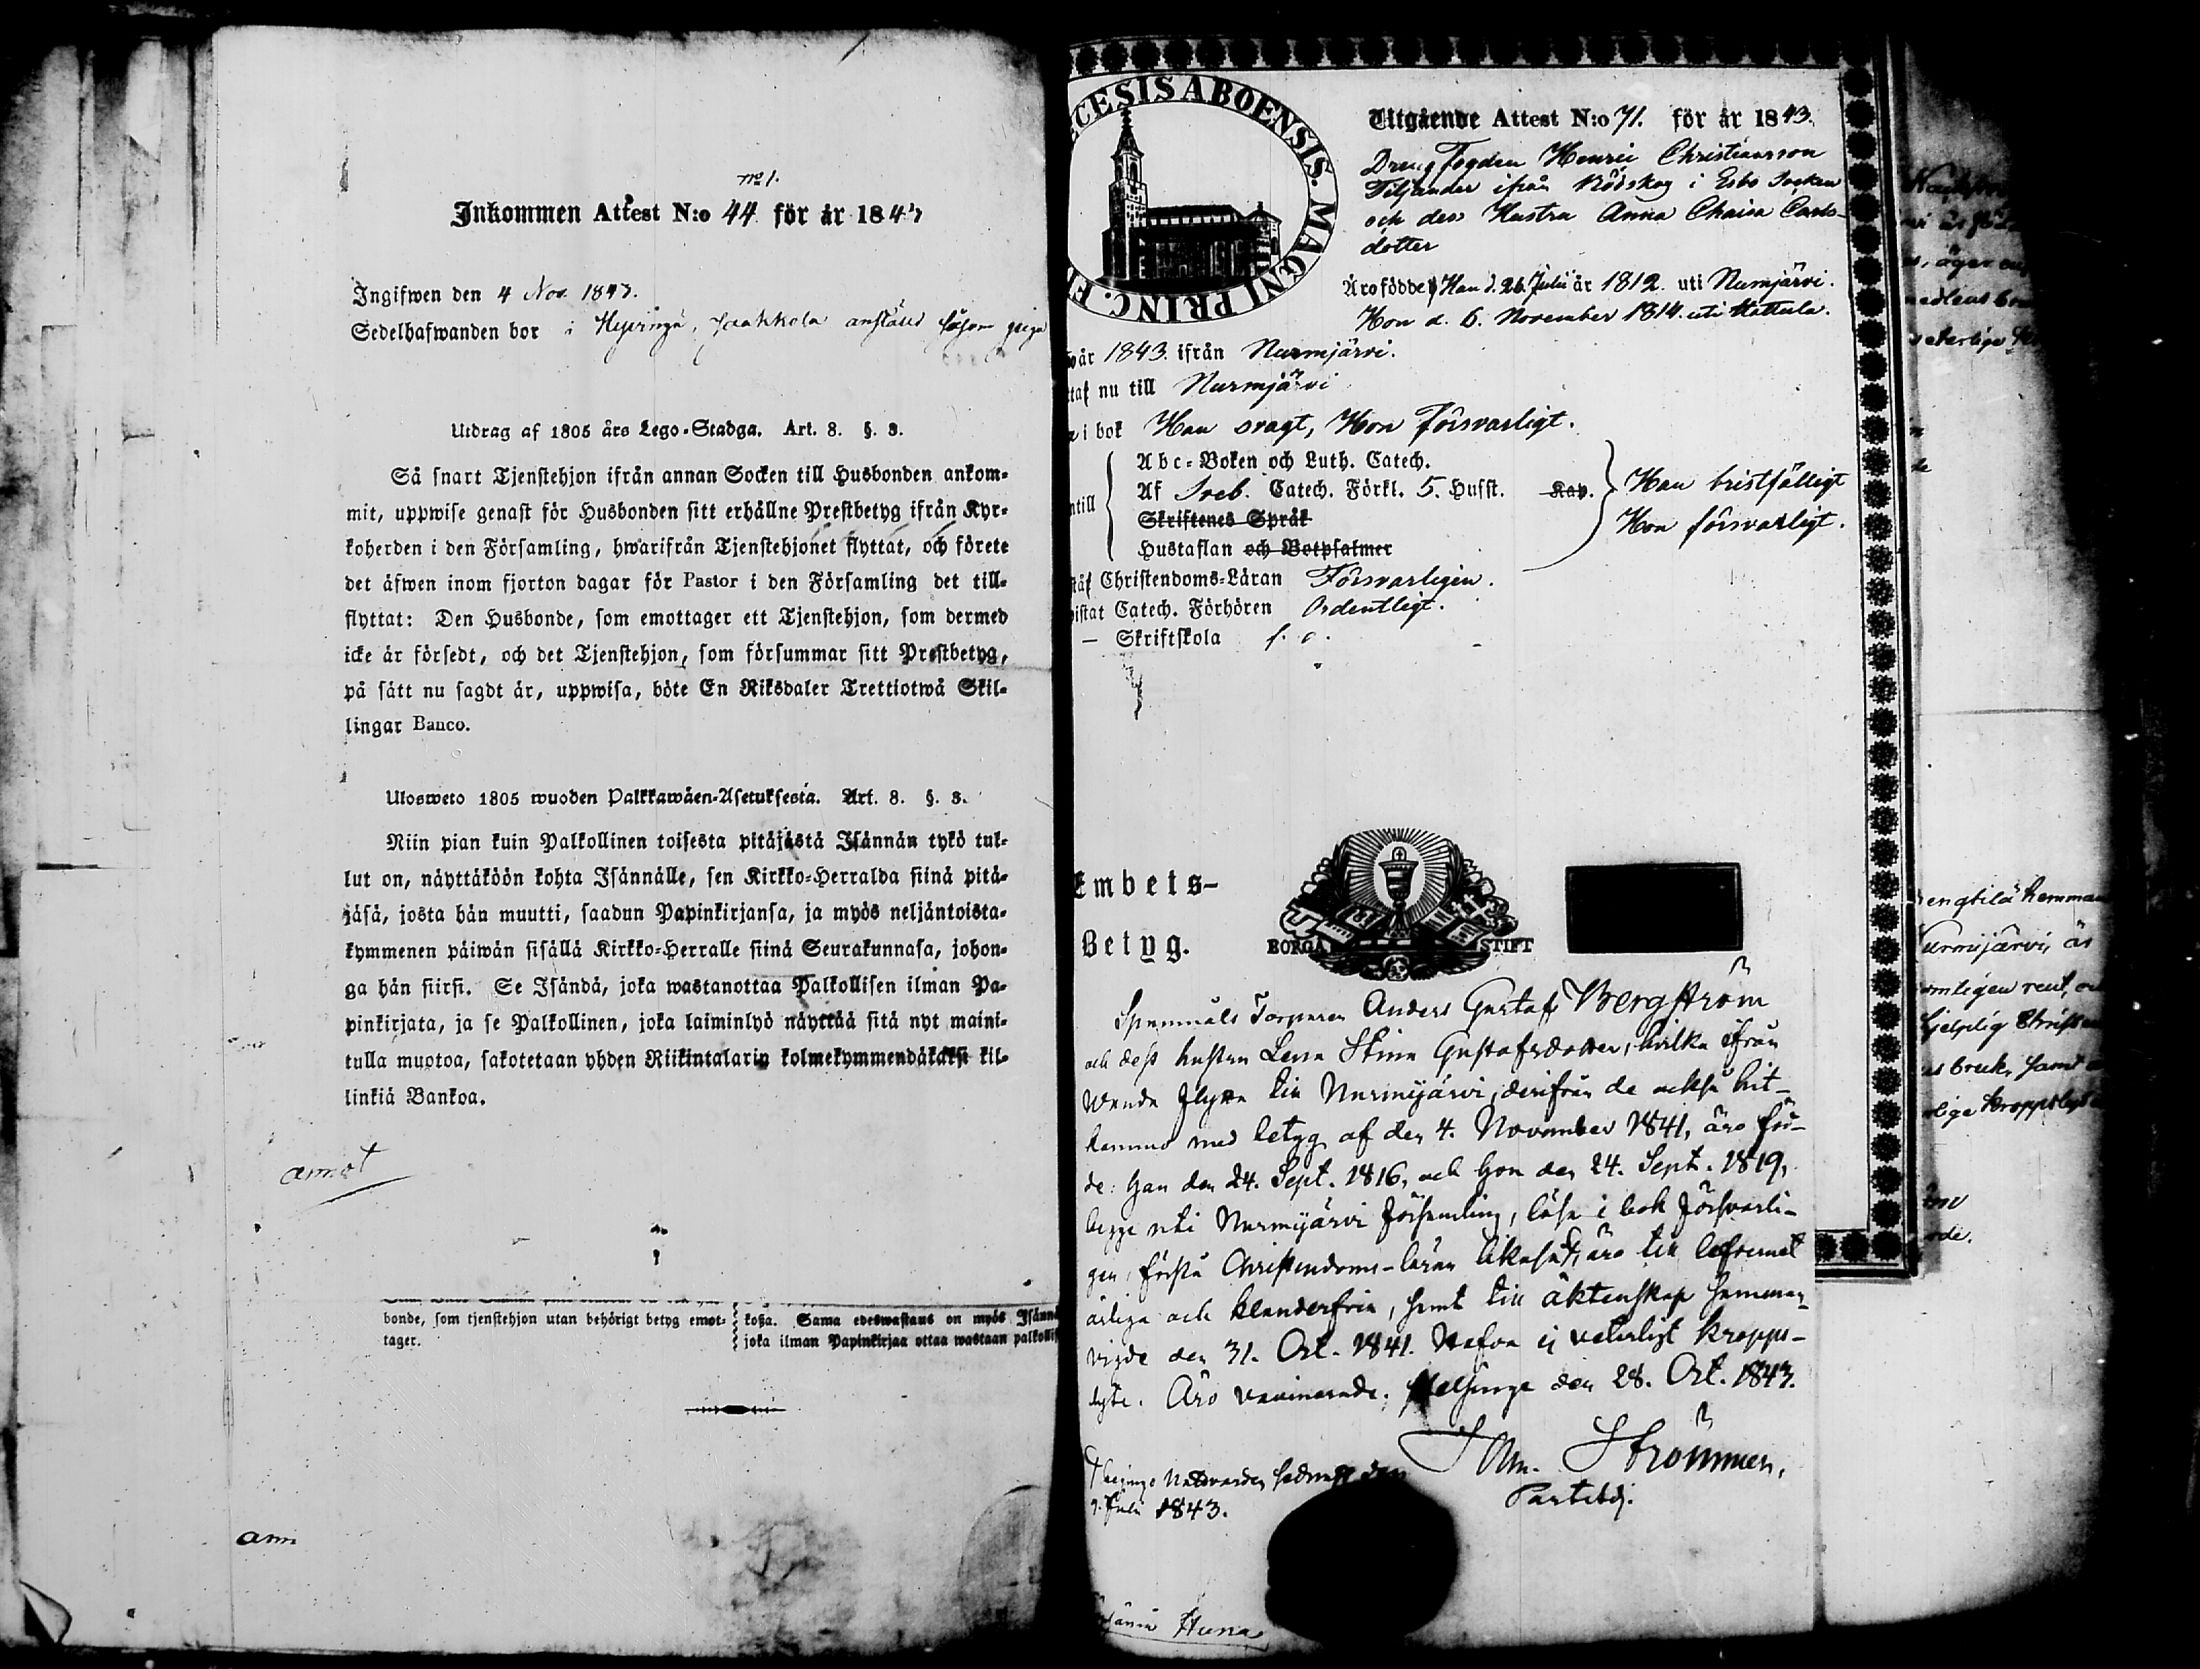 no 1.
Inkommen Attest N:o 44 för år 1843
Ingifwen den 4 Nov. 1843.
Sedelhafwanden bor i Hyvinge, Jaakkola anstäld såsom piga
Utdrag af 1805 års Lego-Stadga. Art. 8. §. 3.
Så snart Tjenstehjon ifrån annan Socken till Husbonden ankom-
mit, uppwise genast för Husbonden sitt erhållne Prestbetyg ifrån Kyr-
koherden i den Församling, hwarifrån Tjenstehjonet flyttat, och förete
det äfwen inom fjorton dagar för Pastor i den Församling det till-
flyttat: Den Husbonde, som emottager ett Tjenstehjon, som dermed
icke är försedt, och det Tjenstehjon, som försummar sitt Prestbetyg,
på sätt nu sagdt är, uppwisa, böte En Riksdaler Trettiotwå Skil-
lingar Banco.
Ulosweto 1805 wuoden Palkkawäen-Asetuksesta. Art. 8. §. 3.
Niin pian kuin Palkollinen toisesta pitäjästä Isännän tykö tul-
lut on, näyttäköön kohta Isännälle, sen Kirkko-Herralda siinä pitä-
jäsä, josta hän muutti, saadun Papinkirjansa, ja myös neljäntoista-
kymmenen päiwän sisällä Kirkko-Herralle siinä Seurakunnasa, johon-
ga hän siirsi. Se Isändä, joka wastanottaa Palkollisen ilman Pa-
pinkirjata, ja se Palkollinen, joka laiminlyö näyttää sitä nyt maini-
tulla muotoa, sakotetaan yhden Riikintalarin kolmekymmendäkaksi kil-
linkiä Bankoa.
amot
bonde, som tjenstehjon utan behörigt betyg emot-
tager.
koßa. Sama edeswastaus on myös Isänn
joka ilman Papinkirjaa ottaa wastaan palkollis
ann
CESIS ABOENSIS. MAGNI PRINC. F
Utgående Attest N:o 71. för år 1843.
Dreng Fogden Henric Christiansson
Tiljander ifrån Rödskog i Esbo Socken
och dess Hustru Anna Chaisa Carls-
dotter
Äro födde Han d. 26 Julii år 1812. uti Nurmjärvi.
Hon d. 6. November 1814. uti Hattula.
år 1843. ifrån Nurmjärvi.
nu till Nurmjärvi
i bok Han svagt, Hon försvarligt.
Abc-Boken och Luth. Catech.
Af Sveb. Catech. Förkl. 5. Husst. Kap.
Skriftenes Språk
Hustaflan och Botpsalmer
Han bristfälligt
Hon försvarligt.
Christendoms-Läran Försvarligen.
istat Catech. Förhören Ordentligt.
— Skriftskola
Embets-
Betyg.
BORGÅ STIFT
Spanmåls Torparen Anders Gustaf Bergström
och dess hustru Lena Stina Gustafsdotter, hvilka ifrån
Wanda flytta till Nurmijärvi, derifrån de också hit-
kommo med betyg af den 4. November 1841, äro föd-
de: han den 24. Sept. 1816, och hon den 24. Sept. 1819,
begge uti Nurmijärvi församling, läsa i bok försvarli-
gen, förstå Christendoms-läran likaså, äro till lefvernet
ärliga och klanderfria, samt till äktenskap samman-
vigde den 31. Oct. 1841. Hafva ej veterligt kropps-
lyte. Äro vaccinerade. Helsinge den 28. Oct. 1843.
Strömmer,
Nattvarden sednast den
Julii 1843.
Huna
engtilä hemman
Nurmijärvi, är
omligen rent, o
hjelplig
bruk, samt
lige kroppslyte